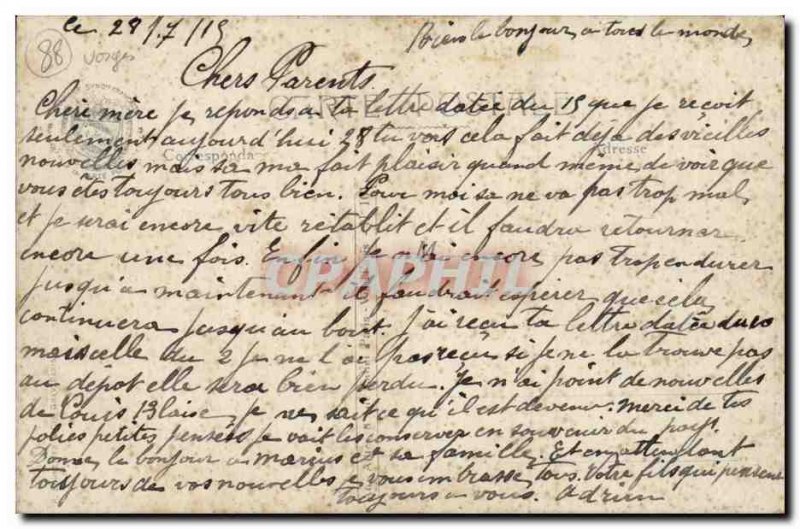 Le 28/7/15
Bien le bonjour a tous le monde
88
Vosges
Chers Parents
CARTE POSTALE
Cheri mère je reponds a ta lettre datée du 15 que je reçoit
seulement aujourd'hui 28 tu vois cela fait déja des vieilles
Correspondance
Adresse
nouvelles mais sa me fait plaisir quand même de voir que
vous etes toujours tous bien. Pour moi sa ne va pas trop mal
et je serai encore vite rétablit et il faudra retourner
encore une fois. Enfin je n'ai encore pas trop endurer
CPAPHIL
jusqu'a maintenant il faudrait esperer que cela
continuera jusqu'au bout. J'ai reçu ta lettre datée du 10
mais celle du 2 je ne l'ai pas reçu si je ne la trouve pas
au dépot elle sera bien perdu. Je n'ai point de nouvelles
de Louis Blaise, je ne sait ce qu'il est devenu. Merci de tes
jolies petites pensées je vait les conserver en souvenir du pays.
Donne le bonjour a Marius et sa famille. Et en attendant
toujours de vos nouvelles je vous embrasse tous. Votre fils qui pense
toujours a vous. Adrien